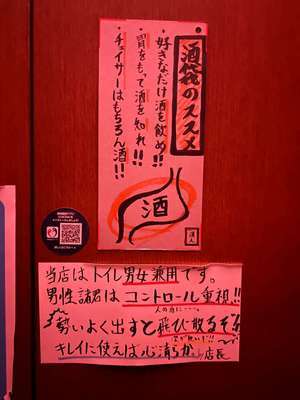 酒袋のススメ
・好きなだけ酒を飲め!!
・胃をもって酒を知れ!!
・チェイサーはもちろん酒!!
酒
当店はトイレ男女兼用です。
男性諸君はコントロール重視!!
勢いよく出すと飛び散るぞ!!
キレイに使えば心清らか
店長